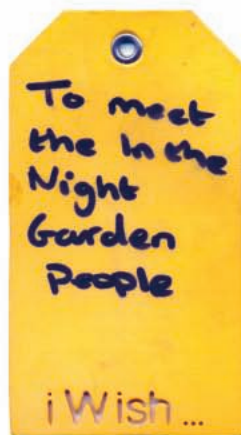 To meet
the In the
Night
Garden
People
i Wish...